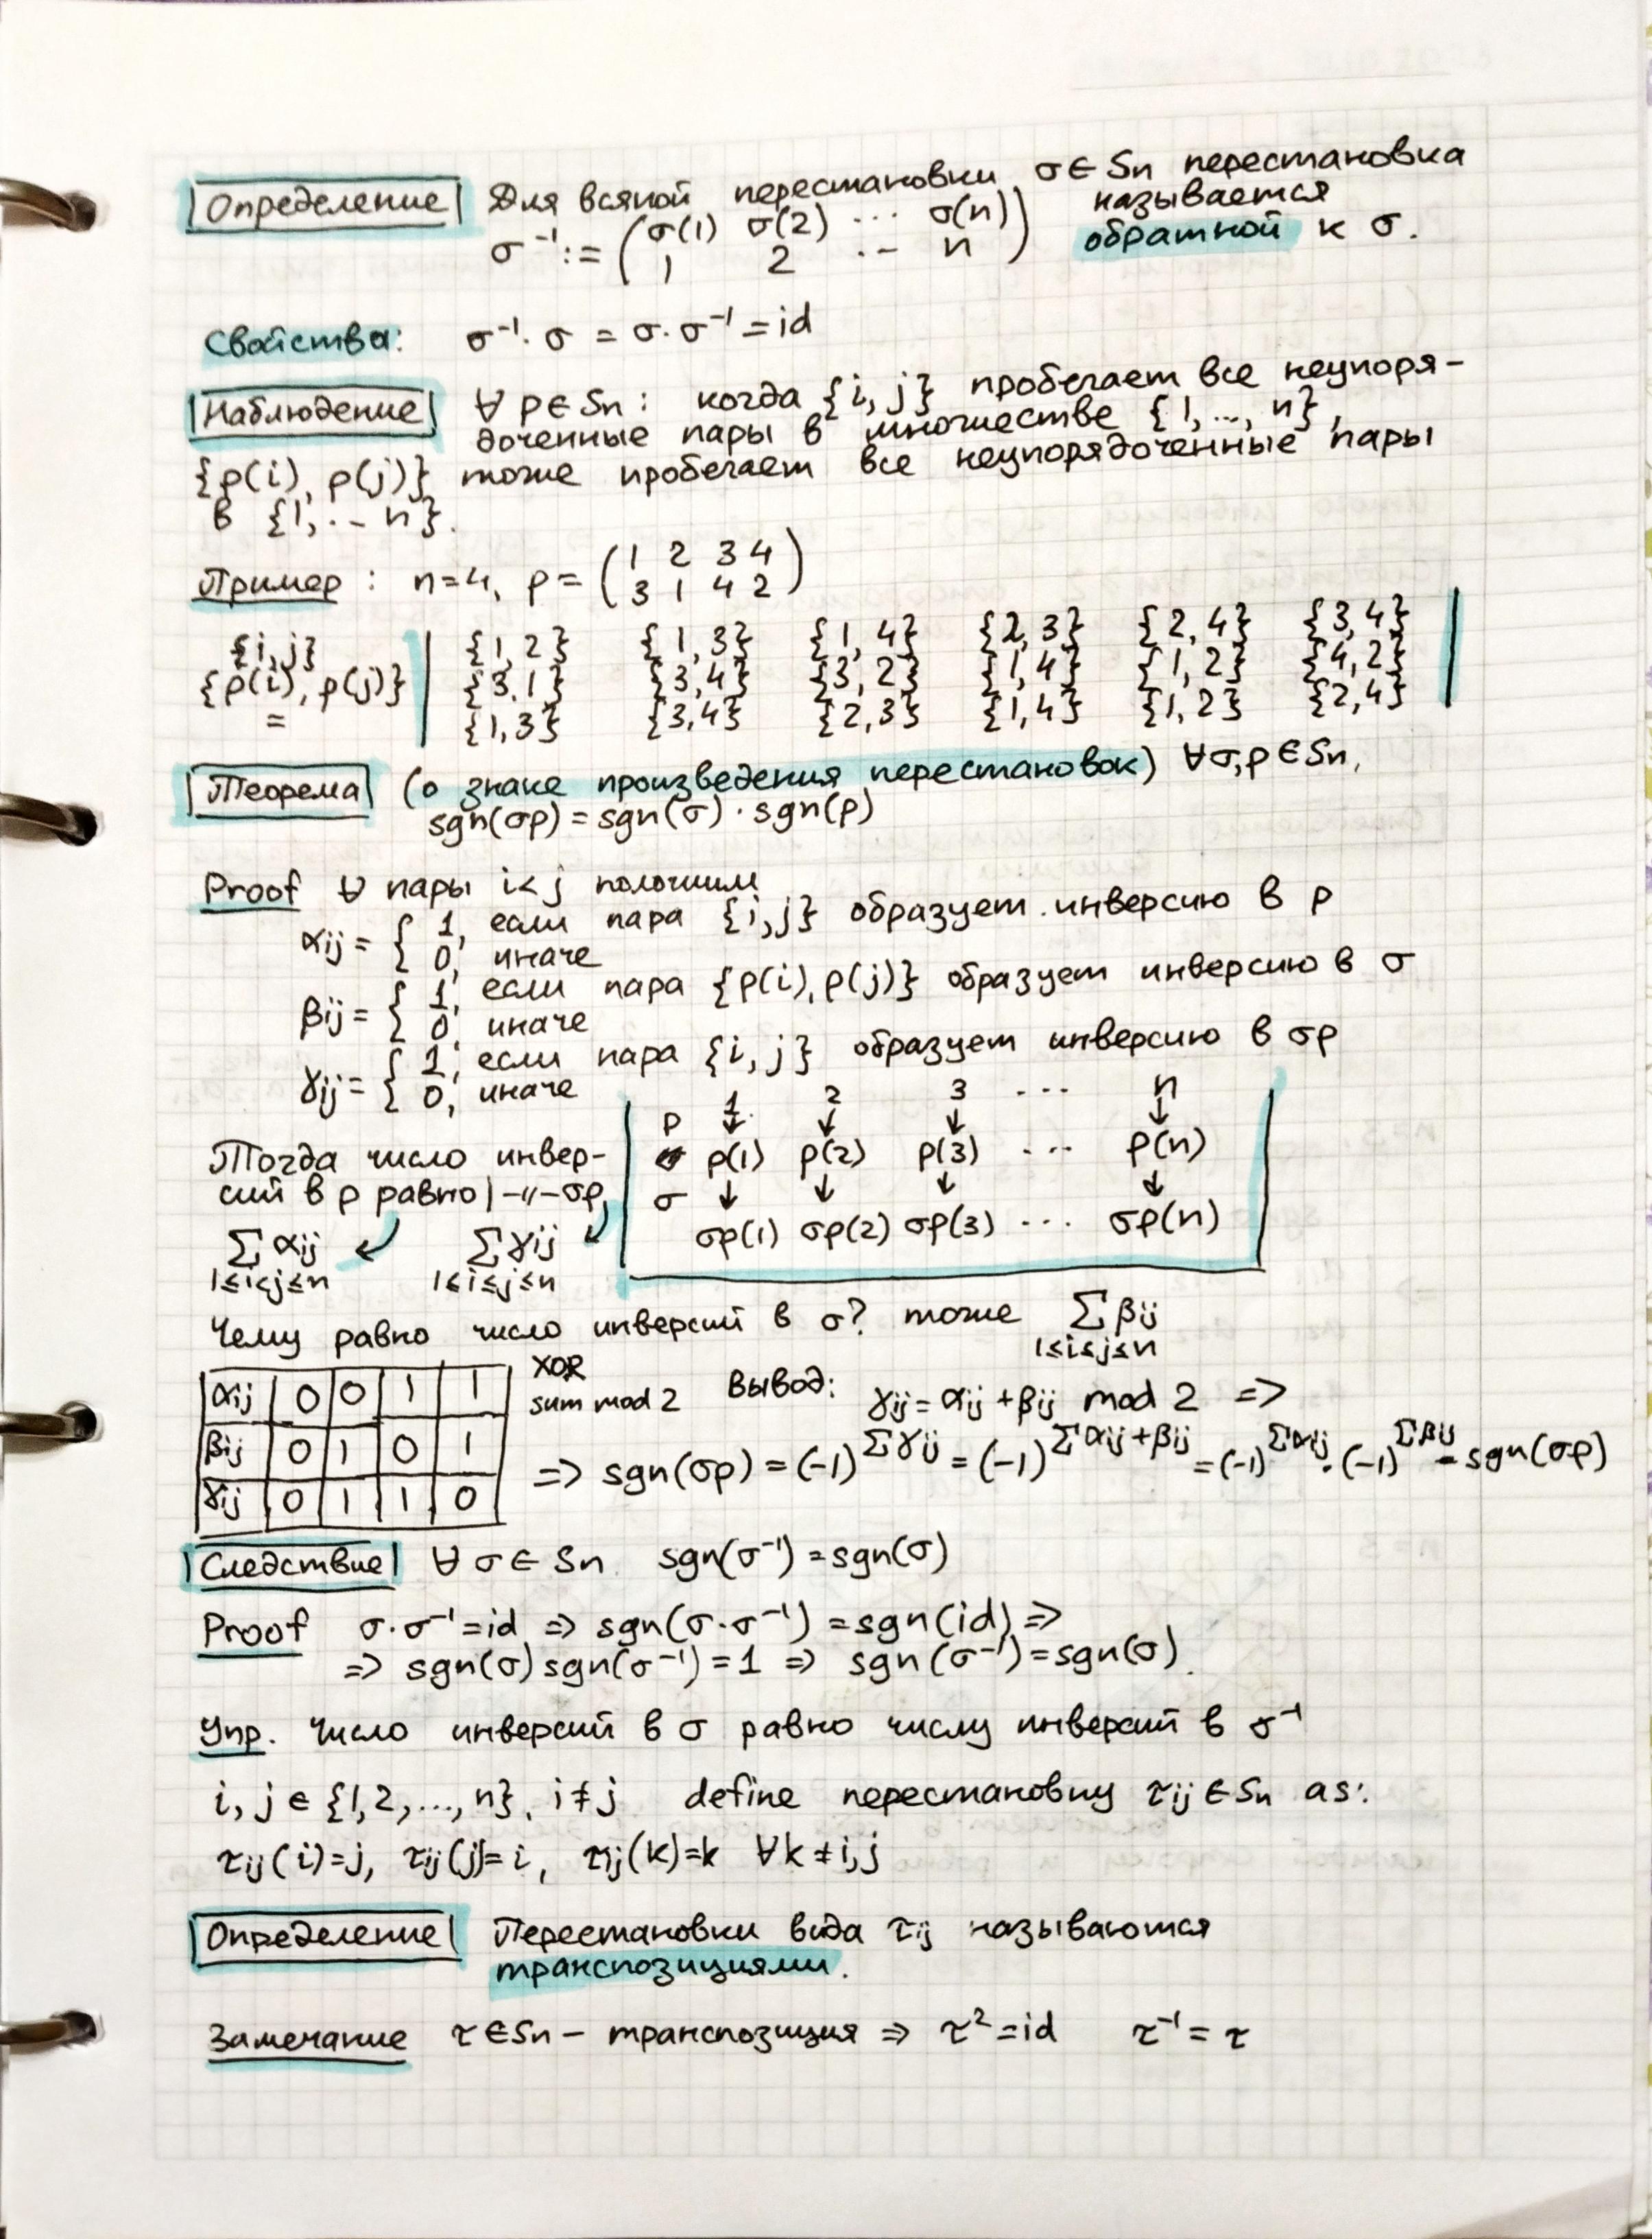 Определение Для всякой перестановки σ∈Sn перестановка
σ⁻¹:= (σ(1) σ(2) ... σ(n)) называется
(1 2 ... n) обратной к σ.
Свойства: σ⁻¹·σ = σ·σ⁻¹ = id
Наблюдение ∀ρ∈Sn: когда {i,j} пробегает все неупоря-
доченные пары в множестве {1,..., n},
{ρ(i), ρ(j)} тоже пробегает все неупорядоченные пары
в {1,... n}.
Пример: n=4, ρ= (1 2 3 4)
(3 1 4 2)
{i,j} {1,2} {1,3} {1,4} {2,3} {2,4} {3,4}
{ρ(i), ρ(j)} {3,1} {3,4} {3,2} {1,4} {1,2} {4,2}
= {1,3} {3,4} {2,3} {1,4} {1,2} {2,4}
Теорема (о знаке произведения перестановок) ∀σ,ρ∈Sn,
sgn(σρ)=sgn(σ)·sgn(ρ)
Proof ∀ пары i<j положим
αij = { 1, если пара {i,j} образует инверсию в ρ
0, иначе
βij = { 1, если пара {ρ(i), ρ(j)} образует инверсию в σ
0, иначе
γij = { 1, если пара {i,j} образует инверсию в σρ
0, иначе
1 2 3 ... n
ρ ↓ ↓ ↓ ↓
ρ(1) ρ(2) ρ(3) ... ρ(n)
σ ↓ ↓ ↓ ↓
σρ(1) σρ(2) σρ(3) ... σρ(n)
Тогда число инвер-
сий в ρ равно | -〃- σρ
Σαij Σγij
1≤i<j≤n 1≤i≤j≤n
Чему равно число инверсий в σ? тоже Σβij
1≤i≤j≤n
αij 0 0 1 1
βij 0 1 0 1
γij 0 1 1 0
XOR
sum mod 2 Вывод: γij = αij + βij mod 2 =>
=> sgn(σρ) = (-1)^Σγij = (-1)^Σαij+βij = (-1)^Σαij · (-1)^Σβij = sgn(σρ)
Следствие ∀σ∈Sn sgn(σ⁻¹)=sgn(σ)
Proof σ·σ⁻¹=id => sgn(σ·σ⁻¹) = sgn(id) =>
=> sgn(σ)sgn(σ⁻¹)=1 => sgn(σ⁻¹)=sgn(σ).
Упр. Число инверсий в σ равно числу инверсий в σ⁻¹
i, j ∈ {1,2,..., n}, i≠j define перестановку τij∈Sn as:
τij(i)=j, τij(j)=i, τij(k)=k ∀k≠i,j
Определение Перестановки вида τij называются
транспозициями.
Замечание τ∈Sn – транспозиция => τ²=id τ⁻¹=τ